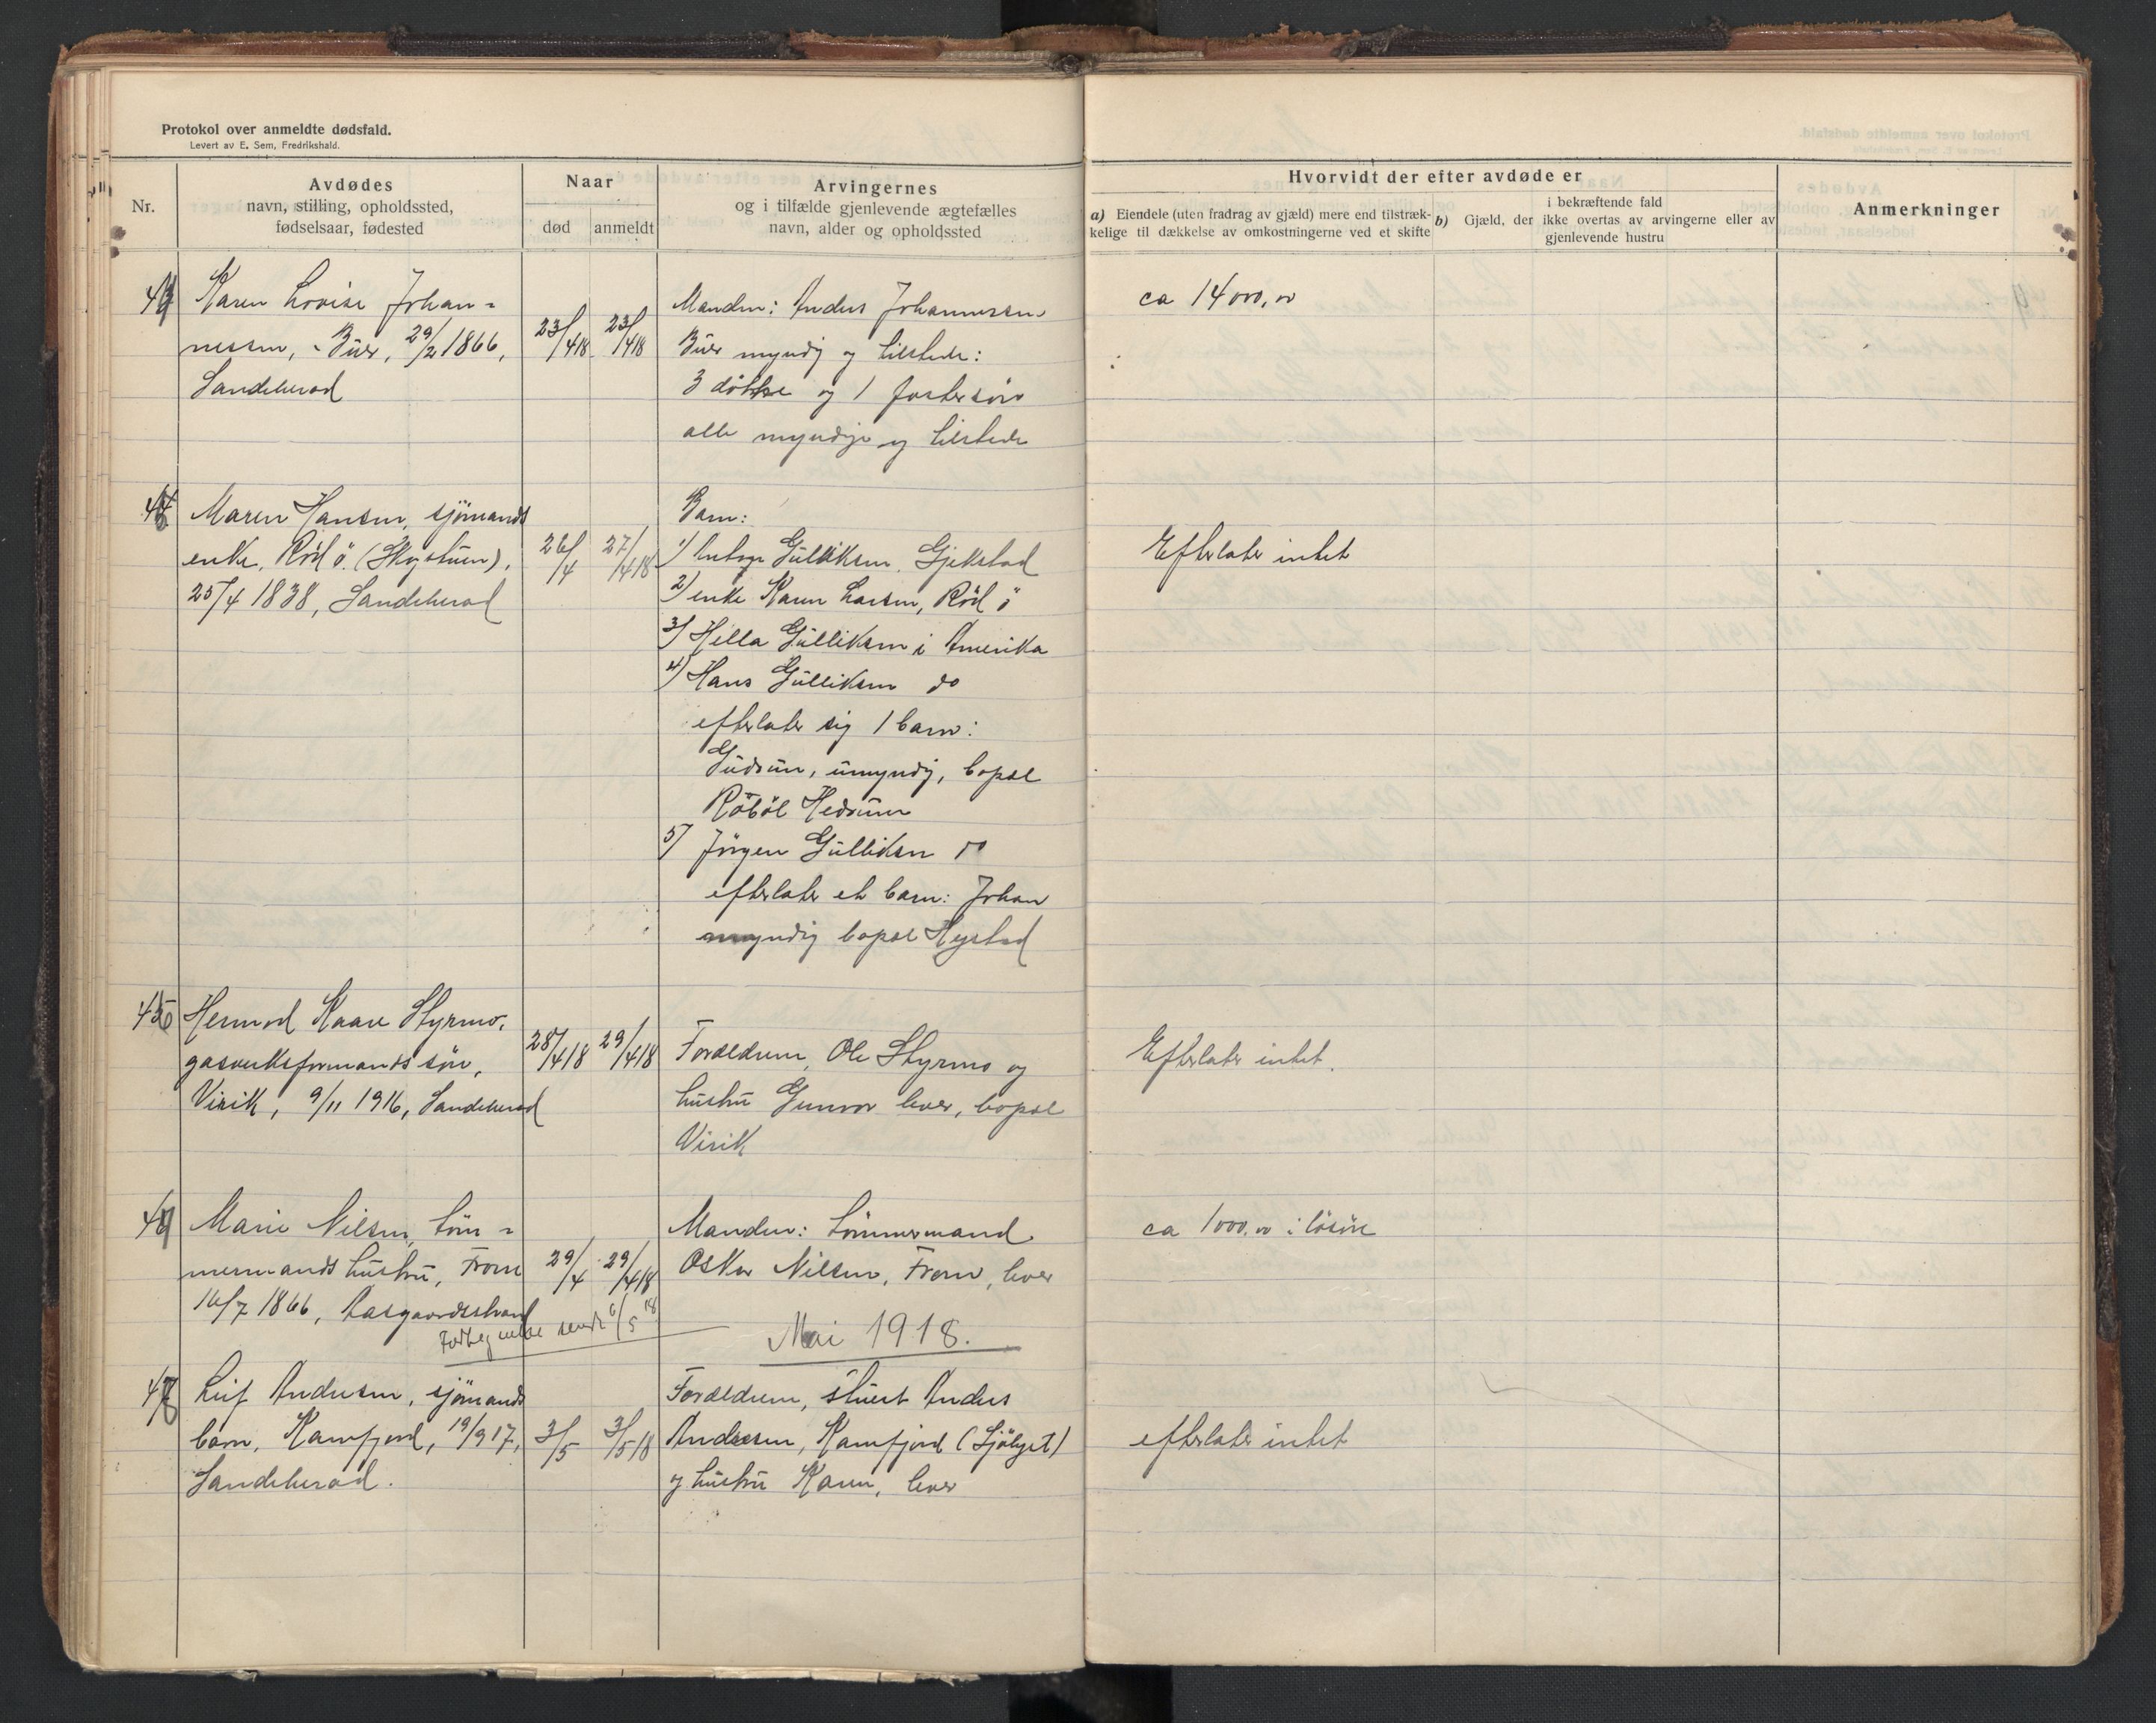 Protokol over anmeldte dødsfald.
Levert av E. Sem, Fredrikshald.
Nr.
Avdødes
navn, stilling, opholdssted,
fødselsaar, fødested
Naar
død
anmeldt
Arvingernes
og i tilfælde gjenlevende ægtefælles
navn, alder og opholdssted
Hvorvidt der efter avdøde er
a) Eiendele (uten fradrag av gjæld) mere end tilstræk-
kelige til dækkelse av omkostningerne ved et skifte
b) Gjæld, der
i bekræftende fald
ikke overtas av arvingerne eller av
gjenlevende hustru
Anmerkninger
43
Karen Lovise Johan=
nessen, Buer, 29/2 1866,
Sandeherad
23/4 18
23/4 18
Manden: Anders Johannessen
Buer myndig og tilstede:
3 døttre og 1 fostersøn
alle myndige og tilstede
ca 14000,00
44
Maren Hansen, sjømands
enke, Rød ö. (Skystuen),
25/4 1838, Sandeherad
26/4
27/4 18
Barn:
1) Gulliksen, Gjekstad
2) enke Karen Larsen, Rød ö
3) Hella Gulliksen i Amerika
4) Hans Gulliksen do
efterlater sig 1 barn:
Gudrun, umyndig, bopæl
Råbøl Hedrum
5) Jörgen Gulliksen do
efterlater et barn: Johan
myndig bopæl Nystad
Efterlater intet
45
Hermod Kaare Styrmo,
gasverksformands søn,
Virik, 9/11 1916, Sandeherad
28/4 18
29/4 18
Forældrene, Ole Styrmo og
hustru Gunvor lever, bopæl
Virik
Efterlater intet.
46
Marie Nilsen, töm=
mermands hustru, Fram
16/7 1866, Aasgaardsstrand
29/4
29/4 18
Manden: Tömmermand
Oskar Nilsen, Fram, lever
ca 1000,00 i løsøre
sendt 6/5 18
Mai 1918.
47
Leif Andersen, sjömands
barn, Kamfjord, 19/9 17,
Sandeherad.
3/5
3/5 18
Forældrene, stuert Anders
Andersen, Kamfjord (Sjölyst)
og hustru Karen, lever
efterlater intet